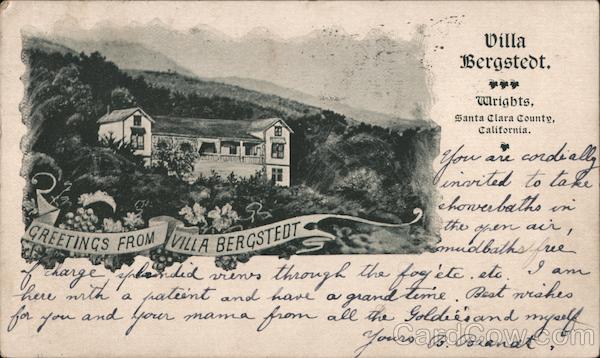 Villa
Bergstedt.
Wrights,
Santa Clara County,
California.
GREETINGS FROM VILLA BERGSTEDT
You are cordially
invited to take
showerbaths in
the open air,
mudbaths free
of charge splendid views through the fog etc. etc. I am
here with a patient and have a grand time. Best wishes
for you and your mama from all the Goldies and myself
Yours B.
CardCow.com